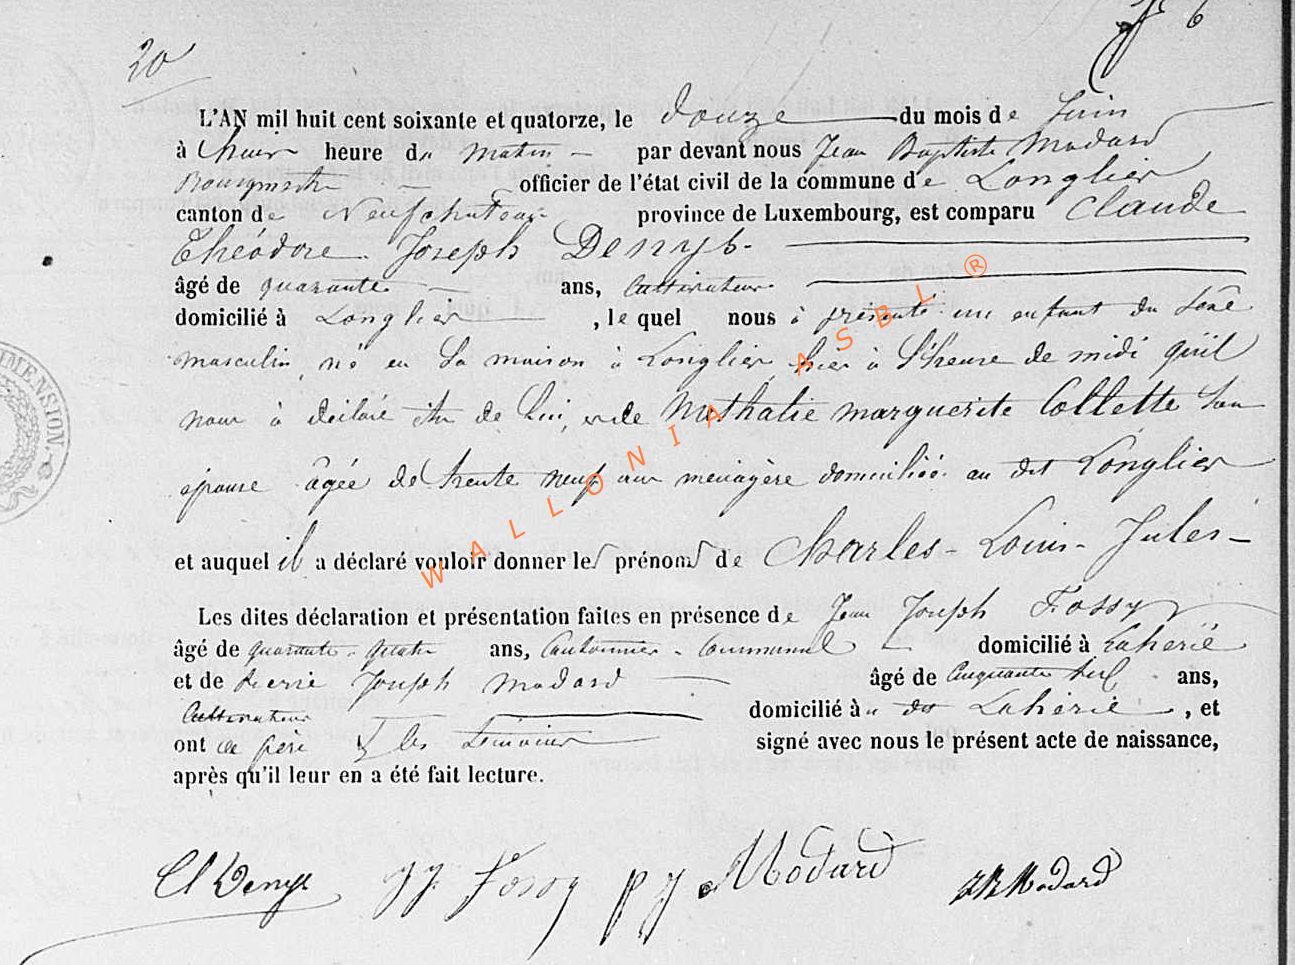 6
20
L'AN mil huit cent soixante et quatorze, le douze du mois de Juin
à heure du matin par devant nous Jean Baptiste Modard
Bourgmestre officier de l'état civil de la commune de Longlier
canton de Neufchateau province de Luxembourg, est comparu Claude
Théodore Joseph Denys
âgé de quarante ans, Cultivateur
domicilié à Longlier, le quel nous à présenté un enfant du sexe
masculin, né en sa maison à Longlier hier à l'heure de midi qu'il
nous à déclaré être de lui, et de Nathalie marguerite Collette son
épouse âgée de trente neuf ans menagère domiciliée au dit Longlier
et auquel il a déclaré vouloir donner les prénoms de Charles - Louis - Jules -
Les dites déclaration et présentation faites en présence de Jean Joseph Fossy
âgé de quarante - quatre ans, Cantonnier - Communal domicilié à Lahérie
et de Pierre Joseph Modard âgé de Cinquante ans,
Cultivateur domicilié à dit Lahérie, et
ont le père & les témoins signé avec nous le présent acte de naissance,
après qu'il leur en a été fait lecture.
Cl Denys JJ. Fossy P J Modard J B Modard
DIMENSION.
WALLONIA ASBL ®